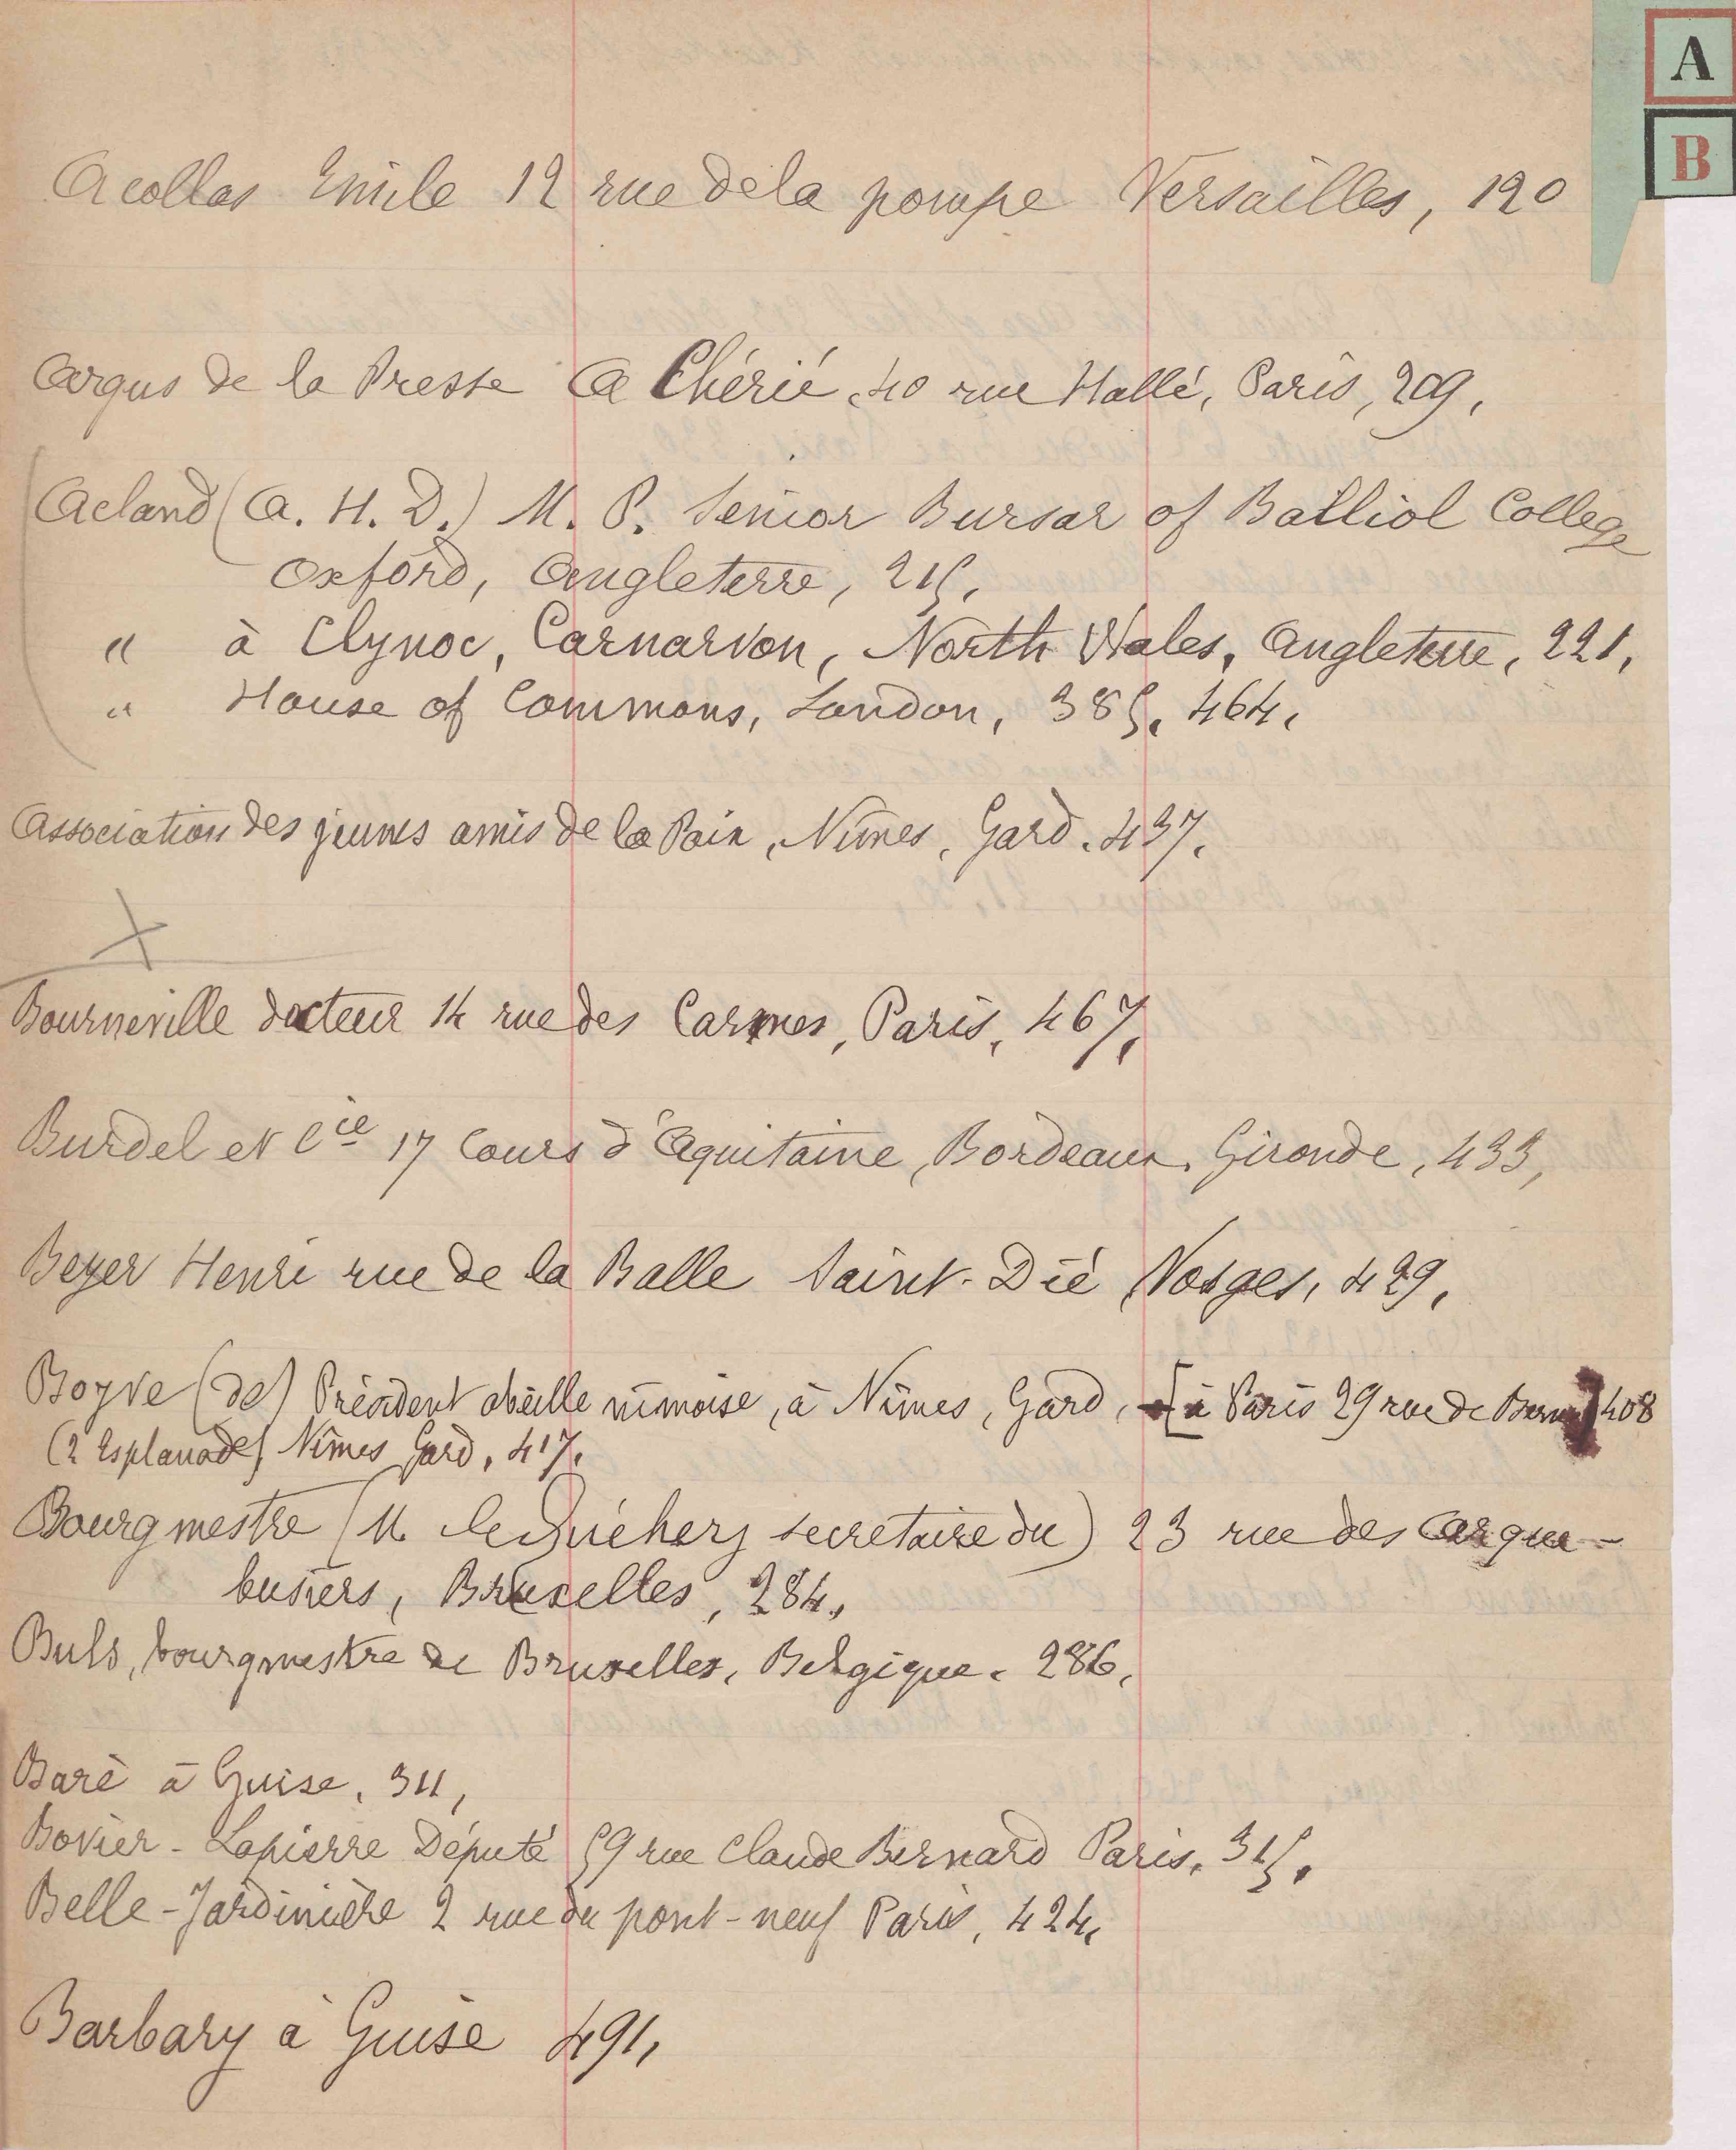 A
B
Acollas Emile 12 rue de la pompe Versailles, 120
Argus de la Presse A Chérié, 40 rue Hallé, Paris, 209,
Acland (A. H. D.) M. P. Senior Bursar of Balliol College
Oxford, Angleterre, 215,
" à Clynoc, Carnarvon, North Wales, Angleterre, 221,
" House of Commons, London, 385, 464,
Association des jeunes amis de la Paix, Nîmes, Gard. 437,
Bourneville docteur 14 rue des Carmes, Paris, 467,
Burdel et Cie 17 Cours d'Aquitaine, Bordeaux, Gironde, 433,
Beyer Henri rue de la Balle Saint-Dié Vosges, 429,
Boyve (de) Président abeille nimoise, à Nîmes, Gard, [à Paris 29 rue de 408
(2 Esplanade) Nîmes Gard, 417,
Bourgmestre (M secretaire du) 23 rue des Arque-
busiers, Bruxelles, 284,
Buls, bourgmestre de Bruxelles, Belgique. 286,
Baré à Guise, 311,
Bovier-Lapierre Député 59 rue Claude Bernard Paris, 315,
Belle-Jardinière 2 rue du pont-neuf Paris, 424,
Barbary à Guise 491,